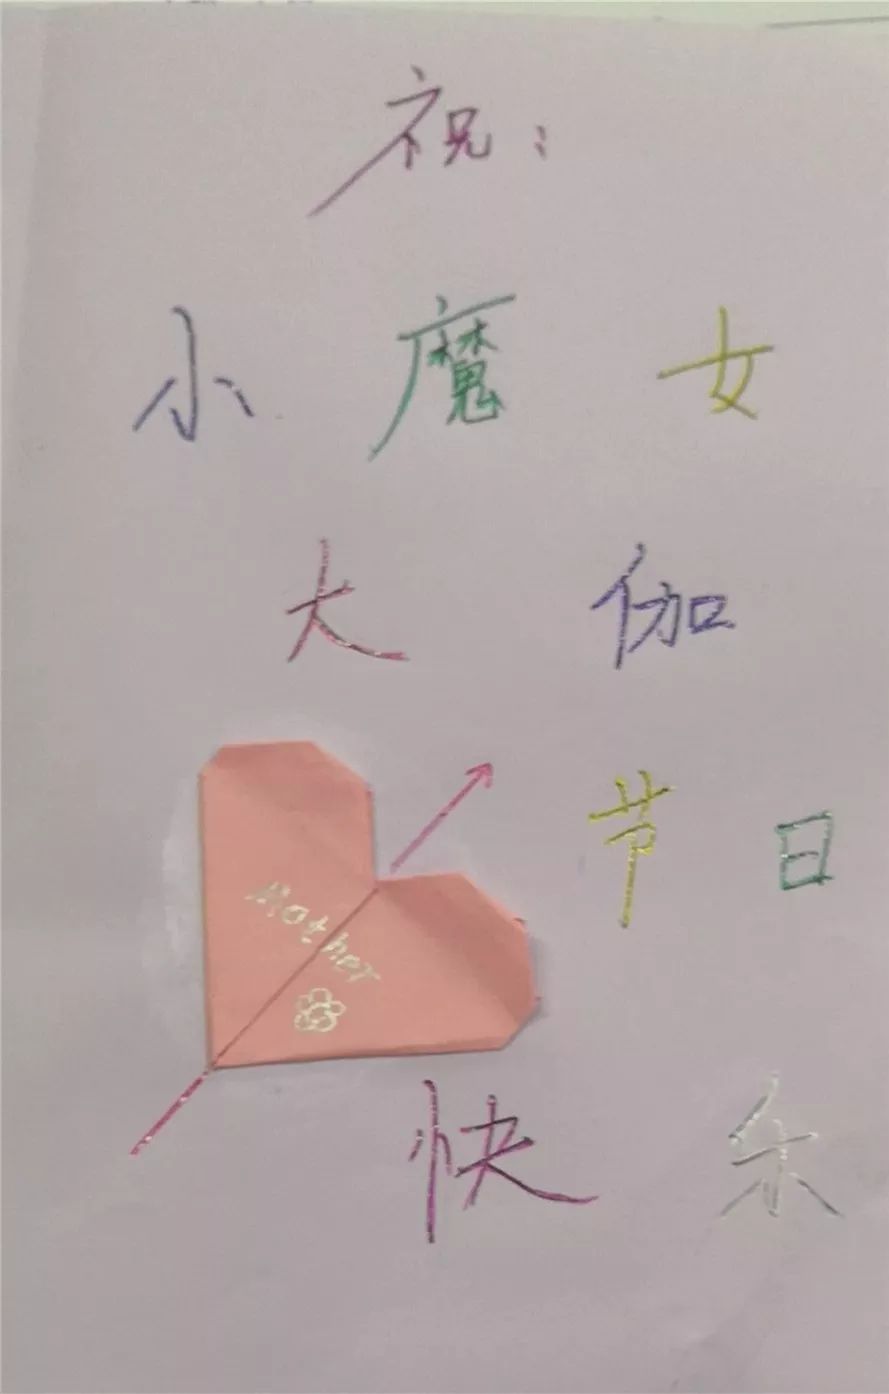 祝：
小魔女
大伽
节日
Mother
快乐